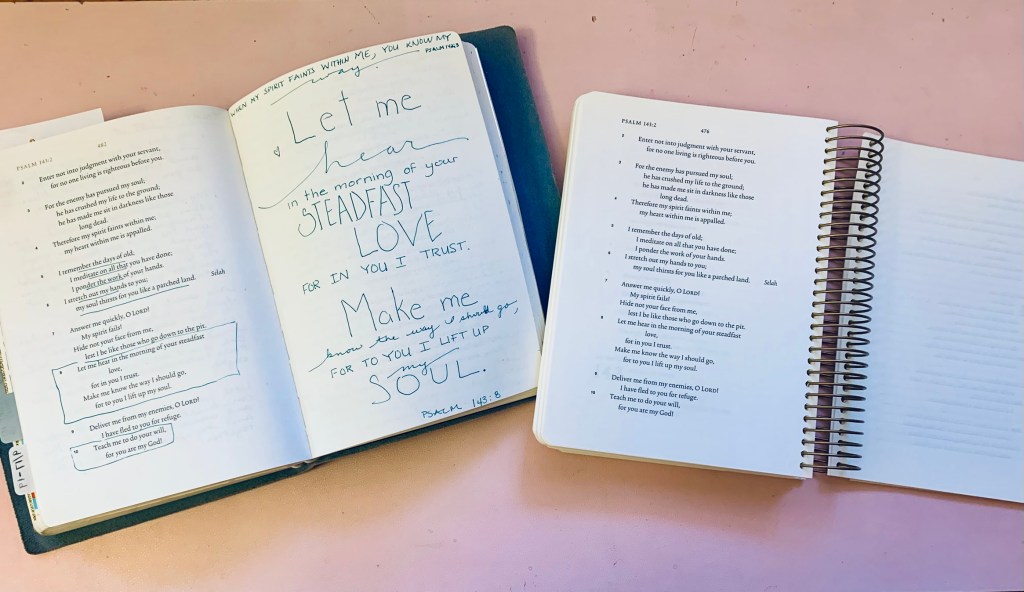 PSALM 143:2 482
2 Enter not into judgment with your servant,
for no one living is righteous before you.
3 For the enemy has pursued my soul;
he has crushed my life to the ground;
he has made me sit in darkness like those
long dead.
4 Therefore my spirit faints within me;
my heart within me is appalled.
5 I remember the days of old;
I meditate on all that you have done;
I ponder the work of your hands.
6 I stretch out my hands to you;
my soul thirsts for you like a parched land. Selah
7 Answer me quickly, O LORD!
My spirit fails!
Hide not your face from me,
lest I be like those who go down to the pit.
8 Let me hear in the morning of your steadfast
love,
for in you I trust.
Make me know the way I should go,
for to you I lift up my soul.
9 Deliver me from my enemies, O LORD!
I have fled to you for refuge.
10 Teach me to do your will,
for you are my God!
WHEN MY SPIRIT FAINTS WITHIN ME, YOU KNOW MY
way.
PSALM 142:3
Let me
hear
in the morning of your
STEADFAST
LOVE
FOR IN YOU I TRUST.
Make me
know the way I should go,
FOR TO YOU I LIFT UP
my
SOUL.
PSALM 143:8
PSALM 143:2 476
2 Enter not into judgment with your servant,
for no one living is righteous before you.
3 For the enemy has pursued my soul;
he has crushed my life to the ground;
he has made me sit in darkness like those
long dead.
4 Therefore my spirit faints within me;
my heart within me is appalled.
5 I remember the days of old;
I meditate on all that you have done;
I ponder the work of your hands.
6 I stretch out my hands to you;
my soul thirsts for you like a parched land. Selah
7 Answer me quickly, O LORD!
My spirit fails!
Hide not your face from me,
lest I be like those who go down to the pit.
8 Let me hear in the morning of your steadfast
love,
for in you I trust.
Make me know the way I should go,
for to you I lift up my soul.
9 Deliver me from my enemies, O LORD!
I have fled to you for refuge.
10 Teach me to do your will,
for you are my God!